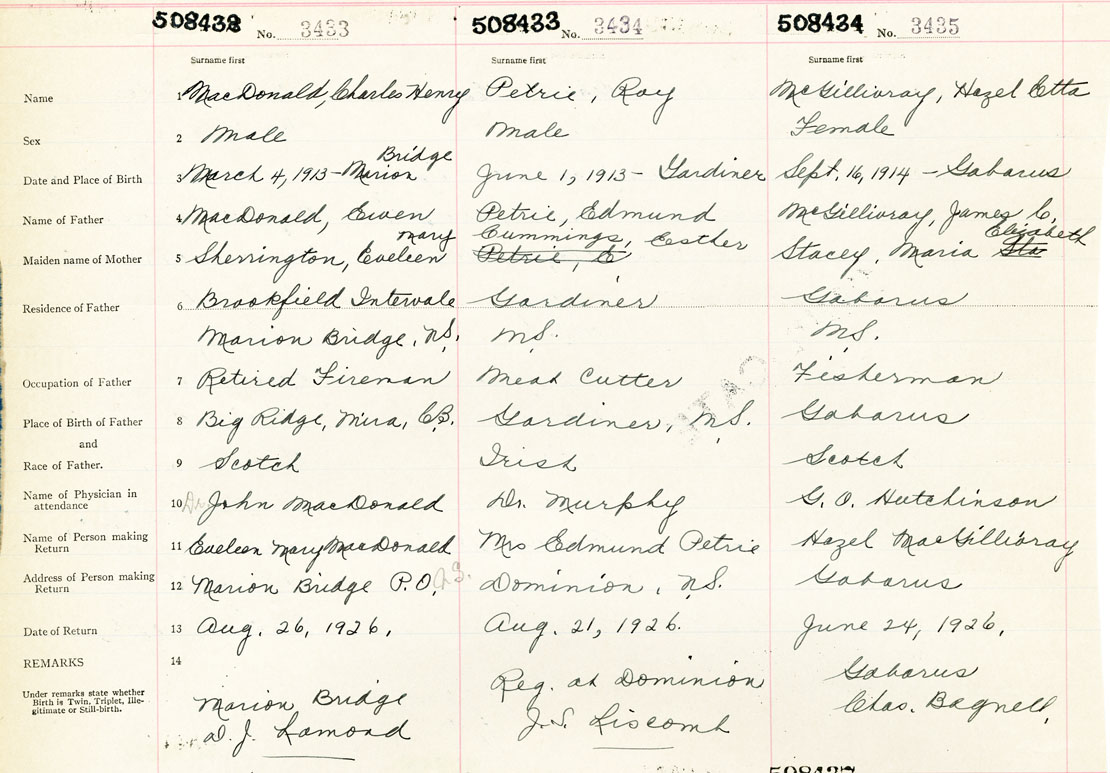 508432 No. 3433 508433 No. 3434 508434 No. 3435
Surname first Surname first Surname first
Name 1 MacDonald, Charles Henry Petrie, Roy McGillivray, Hazel Etta
Sex 2 Male Male Female
Bridge
Date and Place of Birth 3 March 4, 1913 - Marion June 1, 1913 - Gardiner Sept. 16, 1914 - Gabarus
Name of Father 4 MacDonald, Ewen Petrie, Edmund McGillivray, James C.
Mary Cummings, Esther Elizabeth
Maiden name of Mother 5 Sherrington, Eveleen Petrie, E Stacey, Maria Sta
Residence of Father 6 Brookfield Intervale Gardiner Gabarus
Marion Bridge, N.S. N.S. N.S.
Occupation of Father 7 Retired Fireman Meat Cutter Fisherman
Place of Birth of Father 8 Big Ridge, Mira, C.B. Gardiner, N.S. Gabarus
and
Race of Father. 9 Scotch Irish Scotch
Name of Physician in attendance 10 Dr. John MacDonald Dr. Murphy G. O. Hutchinson
Name of Person making Return 11 Eveleen Mary MacDonald Mrs Edmund Petrie Hazel MacGillivray
Address of Person making Return 12 Marion Bridge P.O., N.S. Dominion, N.S. Gabarus
Date of Return 13 Aug. 26, 1926, Aug. 21, 1926. June 24, 1926,
REMARKS 14
Under remarks state whether Birth is Twin, Triplet, Ille-gitimate or Still-birth.
Marion Bridge Reg. at Dominion Gabarus
D. J. Lamond J. S. Liscomb Chas. Bagnell,
508437